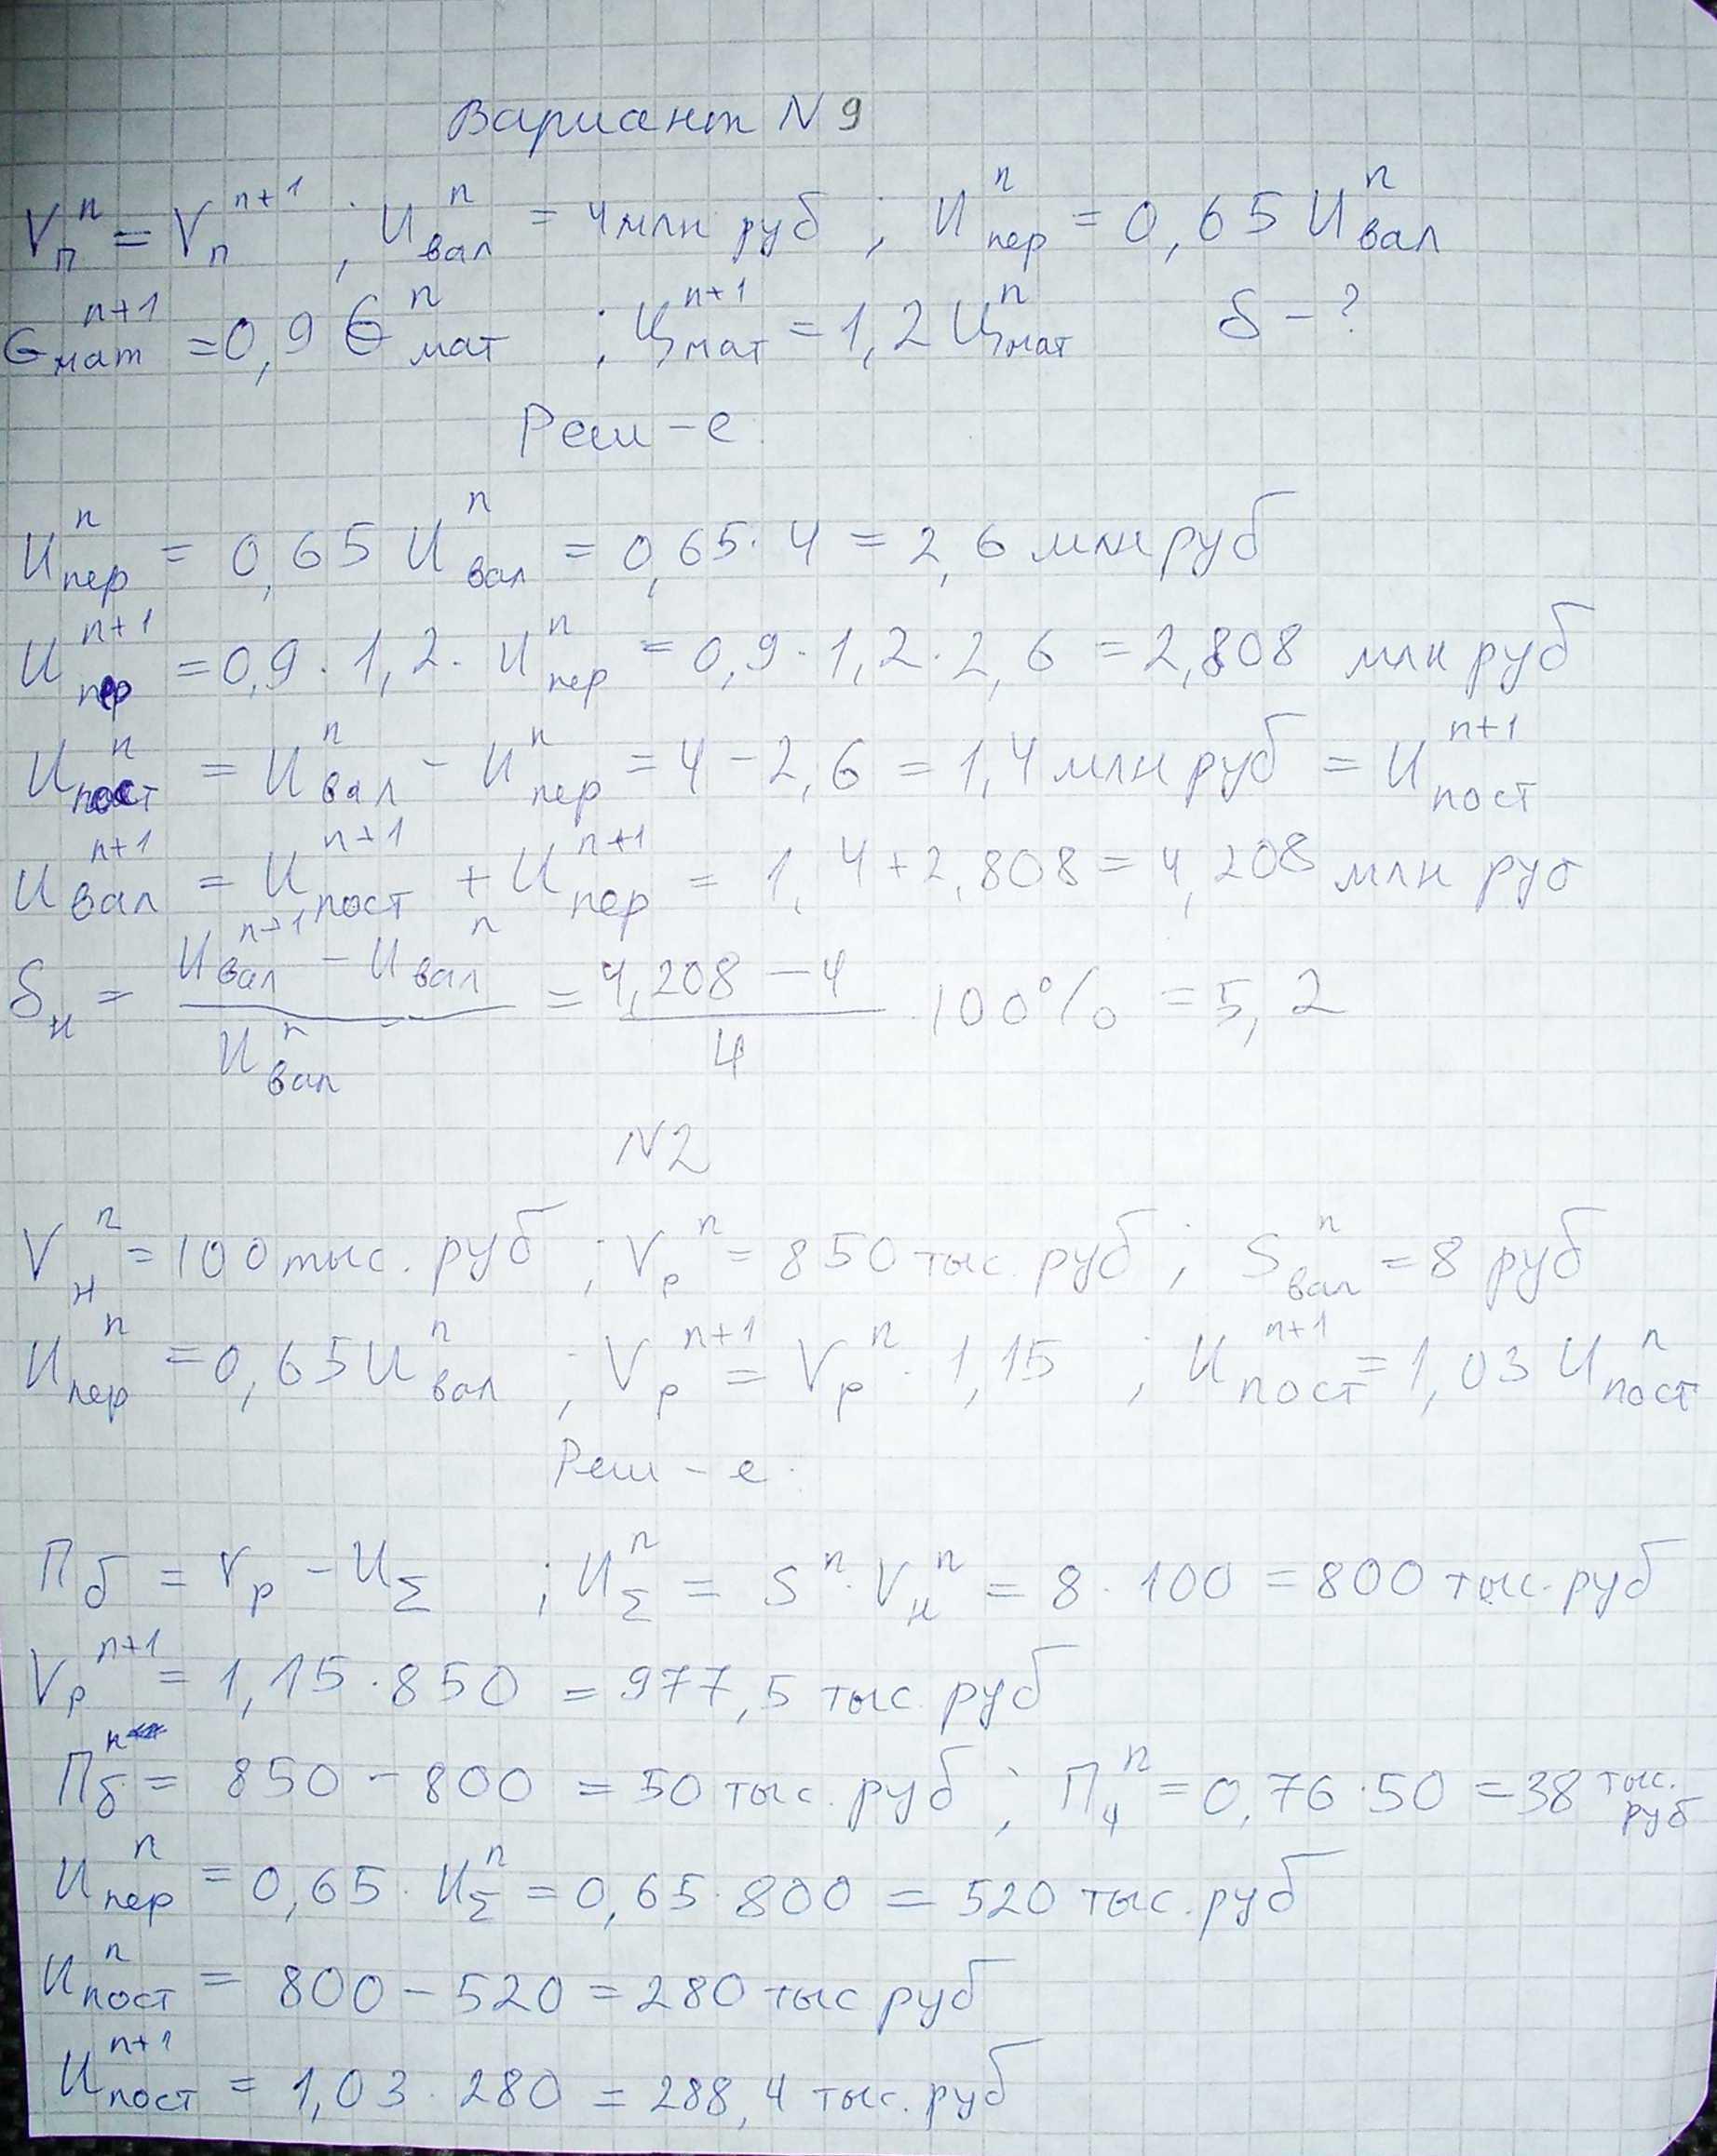 Вариант N 9
Vп^n = Vп^n+1 ; Ивал^n = 4 млн руб ; Ипер^n = 0,65 Ивал^n
Gмат^n+1 = 0,9 Gмат^n ; Цмат^n+1 = 1,2 Цмат^n δ - ?
Реш-е.
Ипер^n = 0,65 Ивал^n = 0,65 · 4 = 2,6 млн руб
Ипер^n+1 = 0,9 · 1,2 · Ипер^n = 0,9 · 1,2 · 2,6 = 2,808 млн руб
Ипост^n = Ивал^n - Ипер^n = 4 - 2,6 = 1,4 млн руб = Ипост^n+1
Ивал^n+1 = Ипост^n+1 + Ипер^n+1 = 1,4 + 2,808 = 4,208 млн руб
δи = (Ивал^n+1 - Ивал^n) / Ивал^n = (4,208 - 4) / 4 · 100% = 5,2
N2
Vн^n = 100 тыс. руб ; Vр^n = 850 тыс. руб ; Sвал^n = 8 руб
Ипер^n = 0,65 Ивал^n ; Vр^n+1 = Vр^n · 1,15 ; Ипост^n+1 = 1,03 Ипост^n
Реш-е.
Пб = Vр - ИΣ ; ИΣ^n = S^n · Vн^n = 8 · 100 = 800 тыс. руб
Vр^n+1 = 1,15 · 850 = 977,5 тыс. руб
Пб^n = 850 - 800 = 50 тыс. руб ; Пч^n = 0,76 · 50 = 38 тыс. руб
Ипер^n = 0,65 · ИΣ^n = 0,65 · 800 = 520 тыс. руб
Ипост^n = 800 - 520 = 280 тыс руб
Ипост^n+1 = 1,03 · 280 = 288,4 тыс. руб